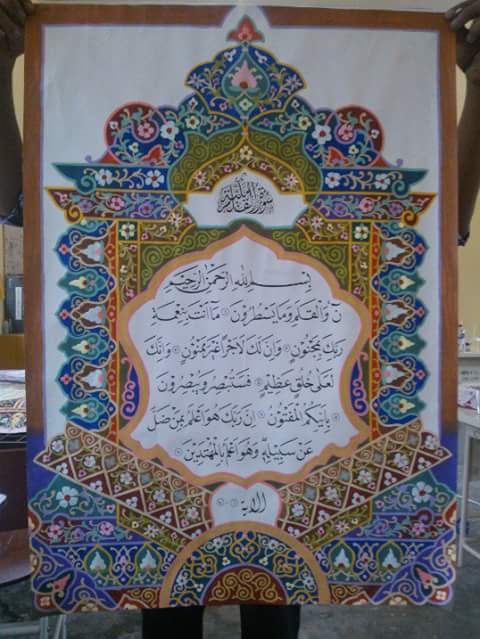 سورة
بِسْمِ اللهِ الرَّحْمٰنِ الرَّحِيْمِ
نۤ وَالْقَلَمِ وَمَا يَسْطُرُوْنَ ۝ مَآ اَنْتَ بِنِعْمَةِ
رَبِّكَ بِمَجْنُوْنٍ ۝ وَاِنَّ لَكَ لَاَجْرًا غَيْرَ مَمْنُوْنٍ ۝ وَاِنَّكَ
لَعَلٰى خُلُقٍ عَظِيْمٍ ۝ فَسَتُبْصِرُ وَيُبْصِرُوْنَ
۝ بِاَيِّكُمُ الْمَفْتُوْنُ ۝ اِنَّ رَبَّكَ هُوَ اَعْلَمُ بِمَنْ ضَلَّ
عَنْ سَبِيْلِهٖ وَهُوَ اَعْلَمُ بِالْمُهْتَدِيْنَ ۝
الاية